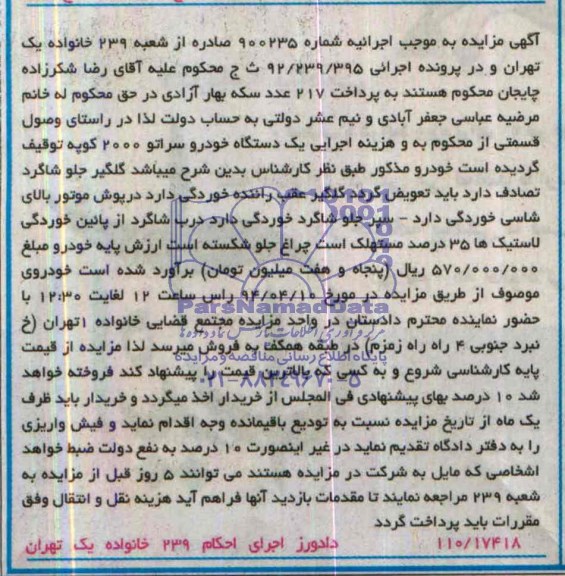 آگهی مزایده به موجب اجرائیه شماره ۹۰۰۲۳۵ صادره از شعبه ۲۳۹ خانواده یک
تهران و در پرونده اجرائی ۹۲/۲۳۹/۳۹۵ ث ج محکوم علیه آقای رضا شکرزاده
چایجان محکوم هستند به پرداخت ۲۱۷ عدد سکه بهار آزادی در حق محکوم له خانم
مرضیه عباسی جعفر آبادی و نیم عشر دولتی به حساب دولت لذا در راستای وصول
قسمتی از محکوم به و هزینه اجرایی یک دستگاه خودرو سراتو ۲۰۰۰ کوپه توقیف
گردیده است خودرو مذکور طبق نظر کارشناس بدین شرح میباشد گلگیر جلو شاگرد
تصادف دارد باید تعویض گردد گلگیر عقب راننده خوردگی دارد درپوش موتور بالای
شاسی خوردگی دارد - سپر جلو شاگرد خوردگی دارد درب شاگرد از پائین خوردگی
لاستیک ها ۳۵ درصد مستهلک است چراغ جلو شکسته است ارزش پایه خودرو مبلغ
۵۷۰/۰۰۰/۰۰۰ ریال (پنجاه و هفت میلیون تومان) برآورد شده است خودروی
موصوف از طریق مزایده در مورخ ۹۴/۰۴/۱۰ راس ساعت ۱۲ لغایت ۱۲:۳۰ با
حضور نماینده محترم دادستان در واحد مزایده مجتمع قضایی خانواده ۱تهران (خ
نبرد جنوبی ۴ راه راه زمزم) در طبقه همکف به فروش میرسد لذا مزایده از قیمت
پایه کارشناسی شروع و به کسی که بالاترین قیمت را پیشنهاد کند فروخته خواهد
شد ۱۰ درصد بهای پیشنهادی فی المجلس از خریدار اخذ میگردد و خریدار باید ظرف
یک ماه از تاریخ مزایده نسبت به تودیع باقیمانده وجه اقدام نماید و فیش واریزی
را به دفتر دادگاه تقدیم نماید در غیر اینصورت ۱۰ درصد به نفع دولت ضبط خواهد
اشخاصی که مایل به شرکت در مزایده هستند می توانند ۵ روز قبل از مزایده به
شعبه ۲۳۹ مراجعه نمایند تا مقدمات بازدید آنها فراهم آید هزینه نقل و انتقال وفق
مقررات باید پرداخت گردد
۱۱۰/۱۷۴۱۸ دادورز اجرای احکام ۲۳۹ خانواده یک تهران
ParsNamadData
پایگاه اطلاع رسانی مناقصه و مزایده
۰۲۱-۸۸۳۴۹۶۷۰-۵